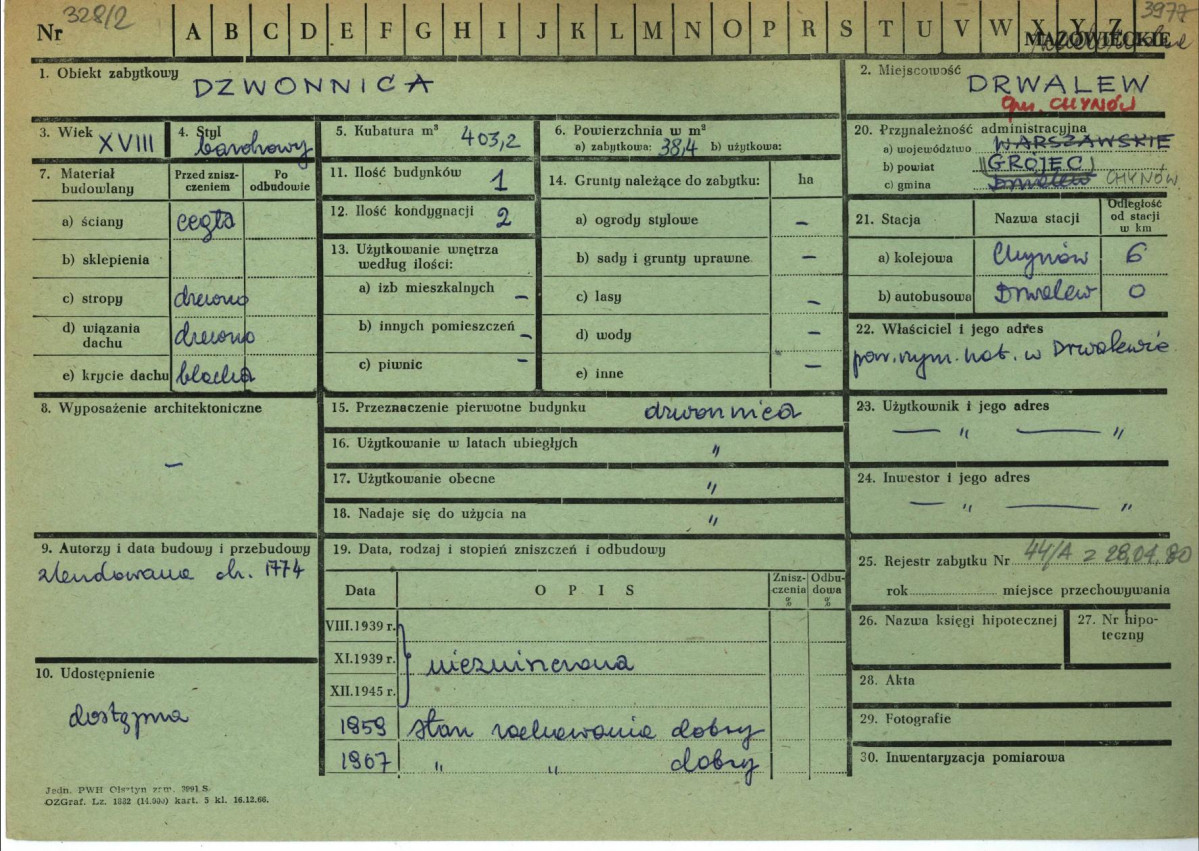 Nr 328/2 A B C D E F G H I J K L M N O P R S T U V W X Y Z 3977
MAZOWIECKIE
1. Obiekt zabytkowy DZWONNICA
2. Miejscowość DRWALEW
gm. CHYNÓW
3. Wiek XVIII
4. Styl barokowy
5. Kubatura m³ 403,2
6. Powierzchnia w m²
a) zabytkowa: 38,4 b) użytkowa:
7. Materiał budowlany
Przed zniszczeniem
Po odbudowie
a) ściany cegła
b) sklepienia
c) stropy drewno
d) wiązania dachu drewno
e) krycie dachu blacha
8. Wyposażenie architektoniczne
—
9. Autorzy i data budowy i przebudowy
zbudowana ok. 1774
10. Udostępnienie
dostępna
11. Ilość budynków 1
12. Ilość kondygnacji 2
13. Użytkowanie wnętrza
według ilości:
a) izb mieszkalnych —
b) innych pomieszczeń —
c) piwnic —
14. Grunty należące do zabytku: ha
a) ogrody stylowe —
b) sady i grunty uprawne —
c) lasy —
d) wody —
e) inne —
15. Przeznaczenie pierwotne budynku dzwonnica
16. Użytkowanie w latach ubiegłych "
17. Użytkowanie obecne "
18. Nadaje się do użycia na "
19. Data, rodzaj i stopień zniszczeń i odbudowy
Data OPIS Zniszczenia % Odbudowa %
VIII.1939 r.
XI.1939 r. niezniszczona
XII.1945 r.
1959 stan zachowania dobry
1967 " " dobry
20. Przynależność administracyjna
a) województwo WARSZAWSKIE
b) powiat GRÓJEC
c) gmina Drwalew CHYNÓW
21. Stacja Nazwa stacji Odległość od stacji w km
a) kolejowa Chynów 6
b) autobusowa Drwalew 0
22. Właściciel i jego adres
par. rzym. kat. w Drwalewie
23. Użytkownik i jego adres
— " — "
24. Inwestor i jego adres
— " — "
25. Rejestr zabytku Nr 44/A z 28.04.80
rok miejsce przechowywania
26. Nazwa księgi hipotecznej
27. Nr hipoteczny
28. Akta
29. Fotografie
30. Inwentaryzacja pomiarowa
Jedn. PWH Olsztyn zam. 3991 S
OZGraf. Lz. 1882 (14.000) kart. 5 kl. 16.12.66.